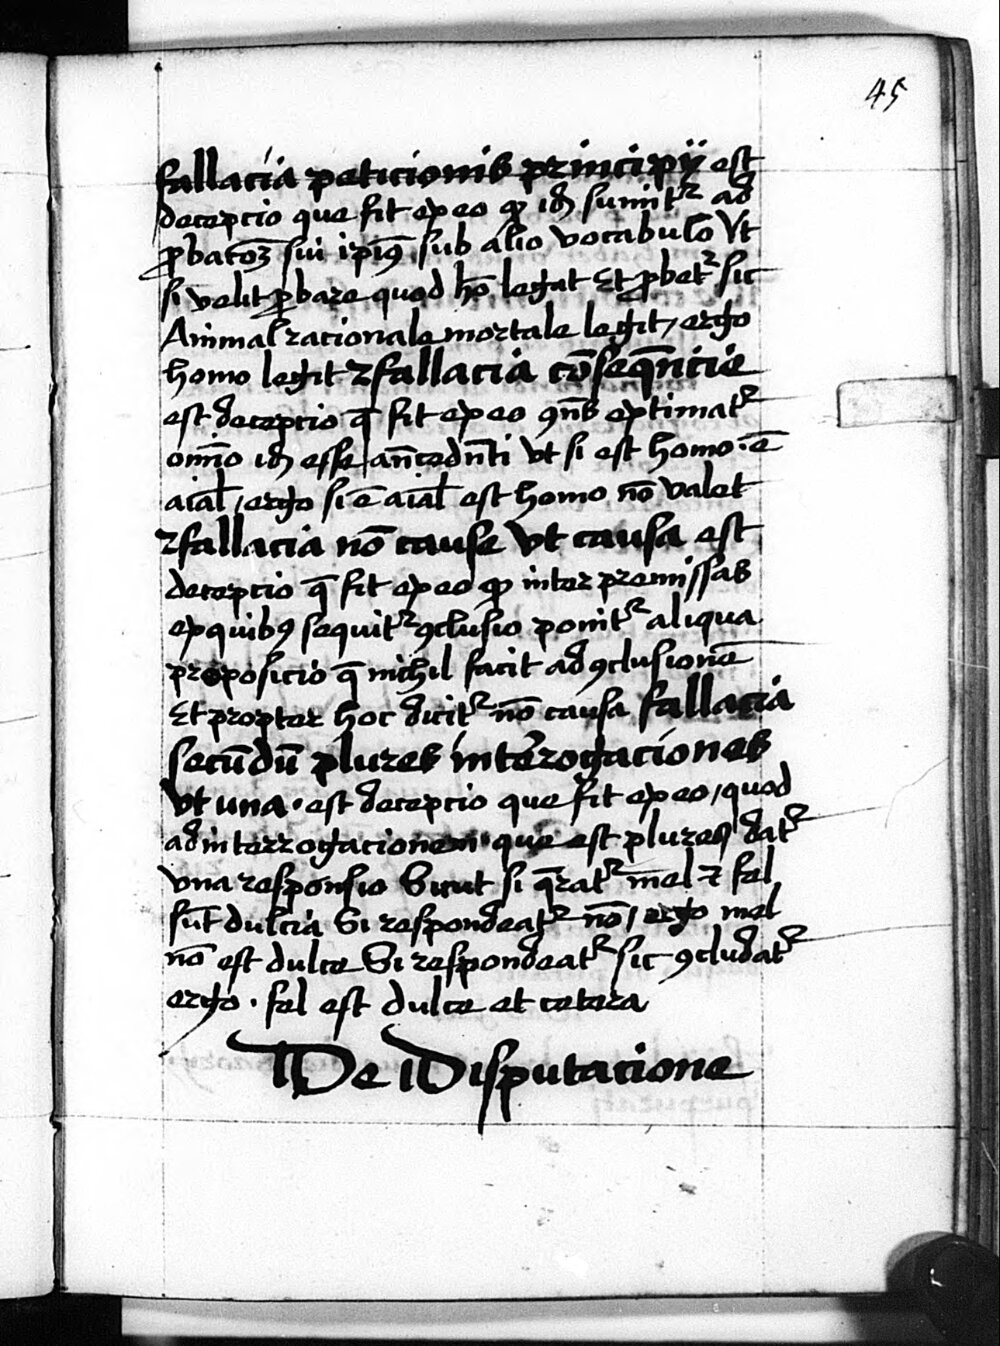 45
fallacia peticionis principij est
decepcio que fit ex eo qꝫ id̄ sumitᷣ ad
ꝓbacoꝫ sui ip̄iꝰ sub alio vocabulo Vt
si velit ꝓbare quod hō legat Et ꝓbetᷣ sic
Animal racionale mortale legit / ergo
homo legit ꝛfallacia cōseq̄ncie
est decepcio q̄ fit ex eo ꝯn̄s extimatᷣ
om̄īo id̄ esse an̄cedn̄ti Vt si est homo · ē
aīal / ergo si ē aīal est homo nō valet
ꝛfallacia nō cause Vt causa est
decepcio q̄ fit ex eo qꝫ inter premissas
ex quibꝰ sequitᷣ ꝯclusio ponitᷣ aliqua
proposicio q̄ nichil facit ad ꝯclusionē
Et propter hoc dicitᷣ nō causa fallacia
secūdū plures interogaciones
Vt una · est decepcio que fit ex eo / quod
ad interrogacionem que est plures datᷣ
vna responsio Sicut si q̄ratᷣ mel ⁊ fel
sūt dulcia Si respondeatᷣ nō / ergo mel
nō est dulce Si respondeatᷣ sic ꝯcludatᷣ
ergo · fel est dulce et cetera
De Disputacione